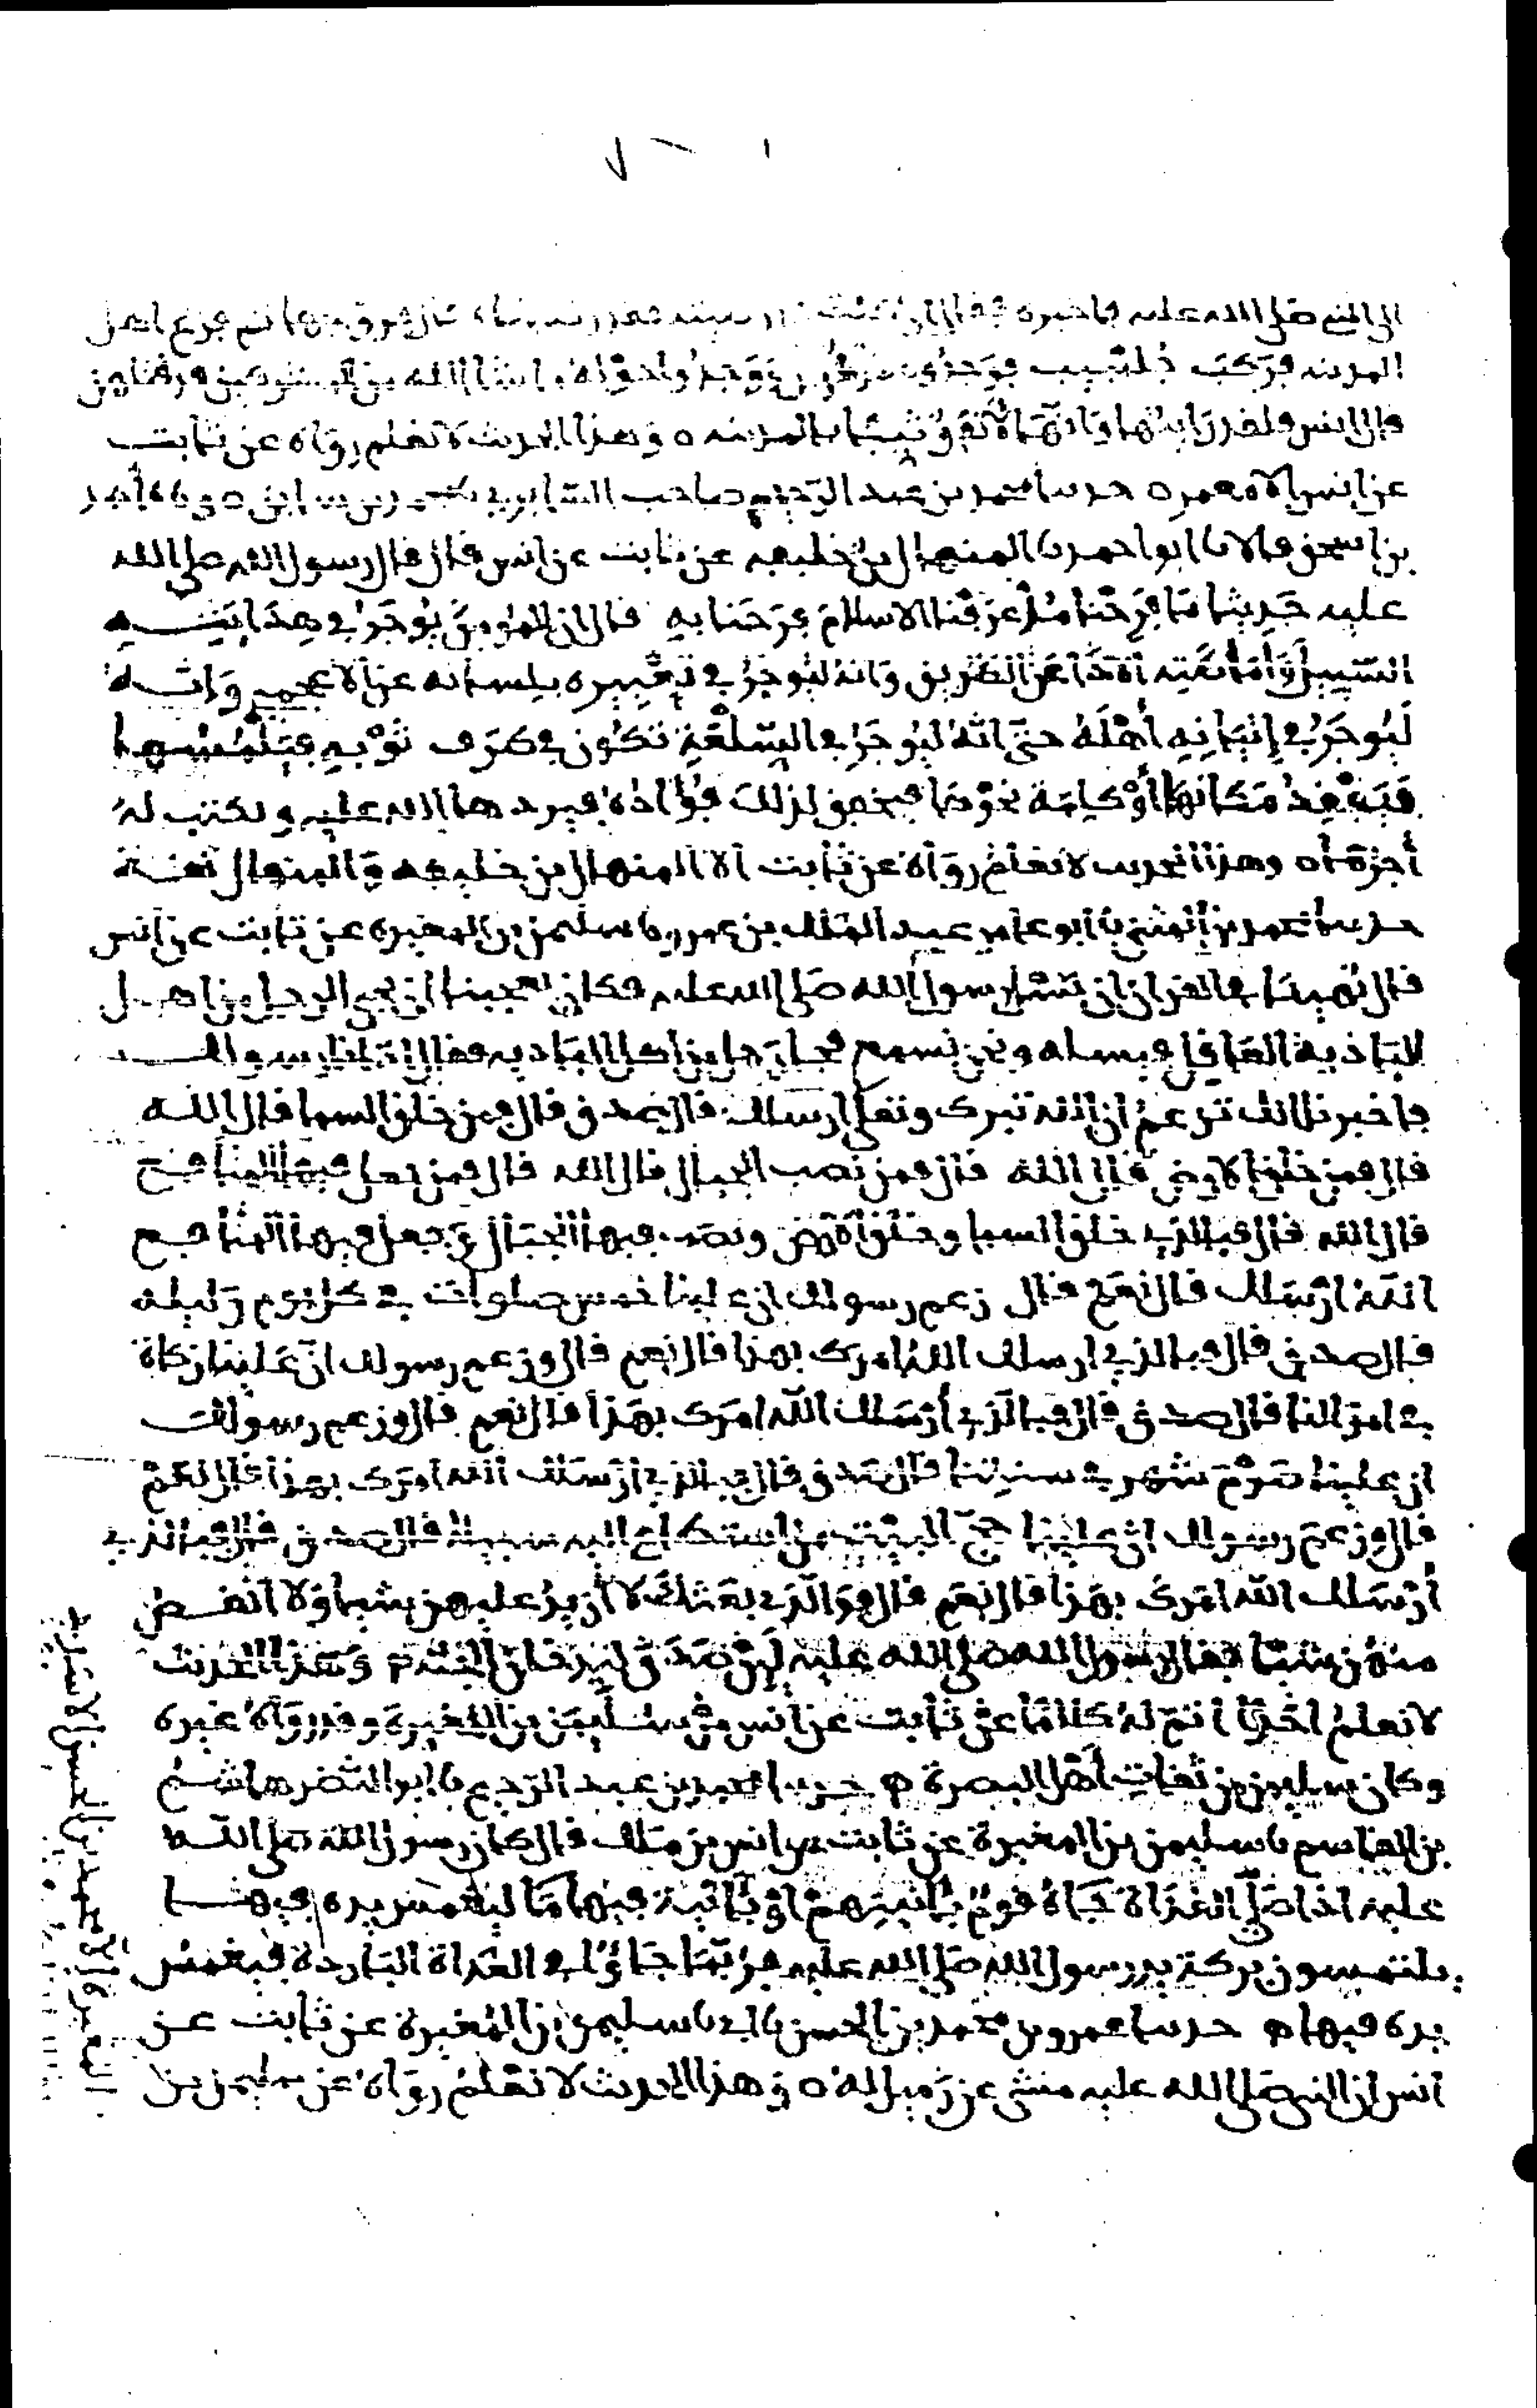 الى النبي صلى الله عليه فاخبره فقال ان كنت فزوجها ثم فزع اهل
المدينه فركب جليبيب فوجدوه قد قتل ووجدوا حوله ناسا من المشركين قد قتلهم
قال انس ولقد رايتها وانها لانفق ثيب بالمدينه ٥ وهذا الحديث لا نعلم رواه عن ثابت
عن انس الا معمر ٥ حدثنا محمد بن عبد الرحيم صاحب السابري
بن اسحق قالا نا ابو احمد نا المنهال بن خليفه عن ثابت عن انس قال قال رسول الله صلى الله
عليه حديثا ما فرحنا منذ عرفنا الاسلام فرحنا به قال ان المومن يوجر في هدايته
السبيل واماطته الاذى عن الطريق وانه ليوجر في تعبيره بلسانه عن الاعجمي وانه
ليوجر في اتيانه اهله حتى انه ليوجر في السلعة تكون في طرف ثوبه فيلمسها
فيفقد مكانها فيخفق لذلك فؤاده فيردها الله عليه ويكتب له
اجرها ٥ وهذا الحديث لا نعلم رواه عن ثابت الا المنهال بن خليفه والمنهال ثقة
حدثنا محمد بن المثنى نا ابو عامر عبد الملك بن عمرو نا سليمن بن المغيره عن ثابت عن انس
قال نهينا في القران ان نسئل رسول الله صلى الله عليه فكان يعجبنا ان يجي الرجل من اهل
البادية العاقل فيسله ونحن نسمع فجا رجل من اهل الباديه فقال اتانا رسولك
فاخبرنا انك تزعم ان الله تبرك وتعلى ارسلك قال صدق قال فمن خلق السما قال الله
قال فمن خلق الارض قال الله قال فمن نصب الجبال قال الله قال فمن جعل فيها المنافع
قال الله قال فبالذي خلق السما وخلق الارض ونصب فيها الجبال وجعل فيها المنافع
الله ارسلك قال نعم قال زعم رسولك ان علينا خمس صلوات في كل يوم وليله
قال صدق قال فبالذي ارسلك الله امرك بهذا قال نعم قال وزعم رسولك ان علينا زكاة
في اموالنا قال صدق قال فبالذي ارسلك الله امرك بهذا قال نعم قال وزعم رسولك
ان علينا صوم شهر في سنتنا قال صدق قال فبالذي ارسلك الله امرك بهذا قال نعم
قال وزعم رسولك ان علينا حج البيت من استطاع اليه سبيلا قال صدق قال فبالذي
ارسلك الله امرك بهذا قال نعم قال فوالذي بعثك لا ازيد عليهن شيا ولا انقص
منهن شيئا فقال رسول الله صلى الله عليه لين صدق ليدخلن الجنة ٥ وهذا الحديث
لا نعلم احدا اتم له كلاما عن ثابت عن انس من سليمن بن المغيرة وقد رواه غيره
وكان سليمن من ثقات اهل البصرة ٥ حدثنا محمد بن عبد الرحيم نا ابو النضر هاشم
بن القاسم نا سليمن بن المغيرة عن ثابت عن انس بن ملك قال كان رسول الله صلى الله
عليه اذا صلى الغداة جاه قوم بانيتهم او بآنية فيها ما ليغمس يده فيها
يلتمسون بركة يد رسول الله صلى الله عليه فربما جاؤا في الغداة الباردة فيغمس
يده فيها ٥ حدثنا عمرو بن محمد بن الحسن نا ابي نا سليمن بن المغيرة عن ثابت عن
انس ان النبي صلى الله عليه مشى عن زميل له ٥ وهذا الحديث لا نعلم رواه عن سليمن بن